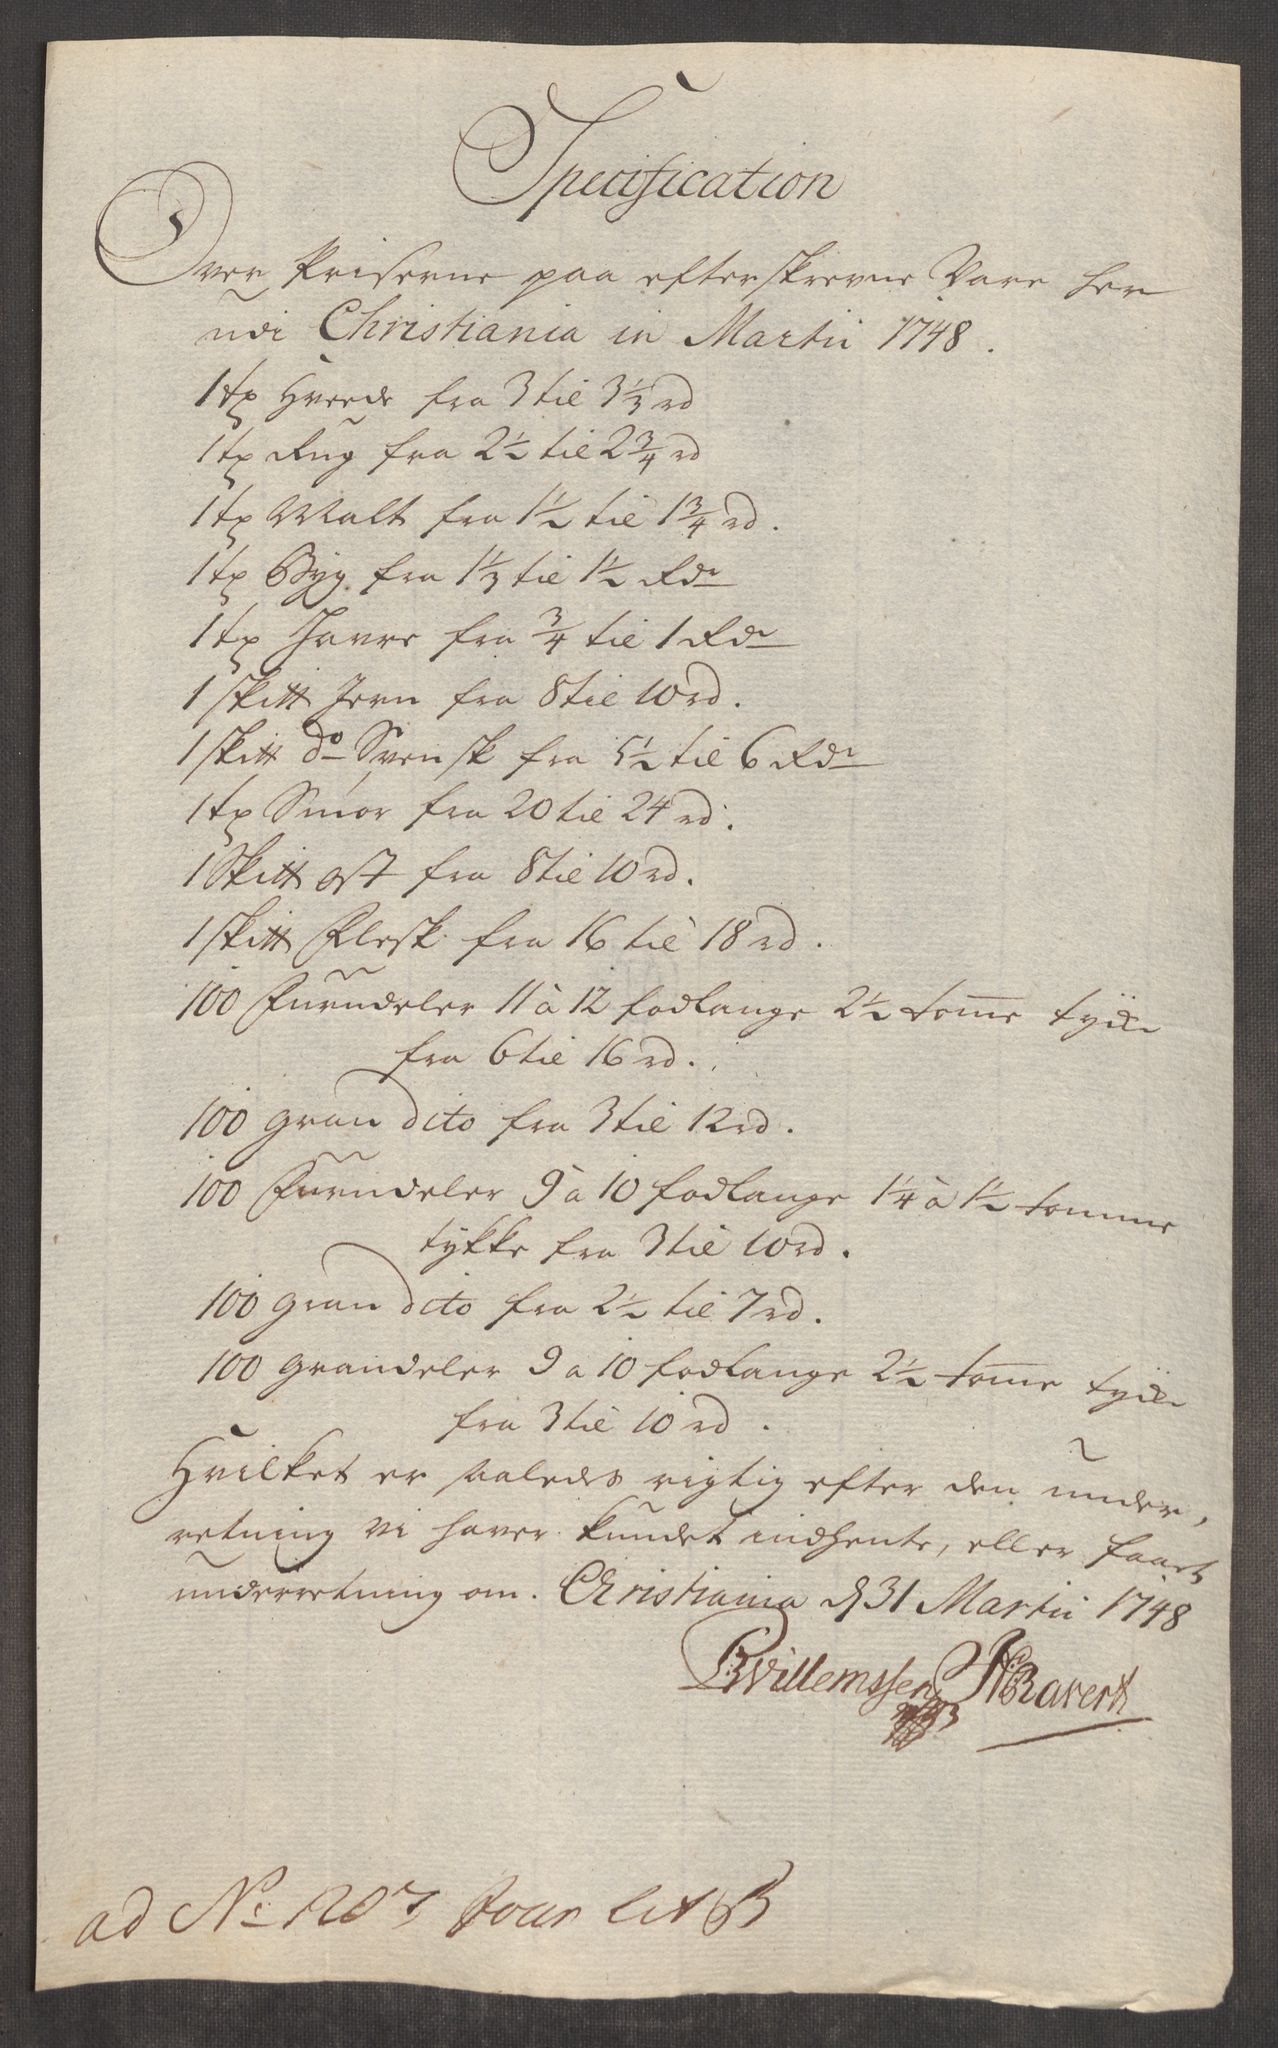 Specification
Over Priserne paa efterskrevne Vare her
udi Christiania in Martii 1748.
1 tø Hvede fra 3 til 3⅓ rd
1 tø Rug fra 2½ til 2¾ rd
1 tø Malt fra 1½ til 1¾ rd.
1 tø Byg fra 1⅓ til 1½ Rdr
1 tø Havre fra ¾ til 1 Rdr
1 skitt Jern fra 8 til 10 rd.
1 skitt do Svensk fra 5½ til 6 Rdr
1 tø Smör fra 20 til 24 rd.
1 Skitt ost fra 8 til 10 rd.
1 skitt Flesk fra 16 til 18 rd.
100 Furudeler 11 à 12 fodlange 2½ tome tyck
fra 6 til 16 rd.
100 gran dito fra 3 til 12 rd.
100 Furudeler 9 à 10 fodlange 1¼ à 1½ tomme
tykke fra 3 til 10 rd.
100 gran dito fra 2½ til 7 rd.
100 Grandeler 9 a 10 fodlange 2½ tome tyck
fra 3 til 10 rd.
Hvilket er saaledes rigtig efter den under,
retning vi haver kundet indhente, eller faaet
underretning om. Christiania d 31 Martii 1748
BWillemssen NRavert
ad No 1203 Jour lit B